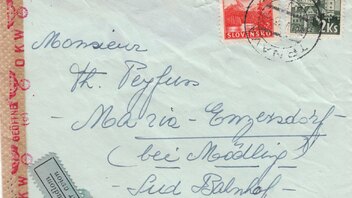 Monsieur
Th. Peyfuss
- Maria - Enzersdorf -
(bei Mödling)
- Süd Bahnhof -
SLOVENSKO
2Ks
TRNAVA
OKW
GEÖFFNET
OKW